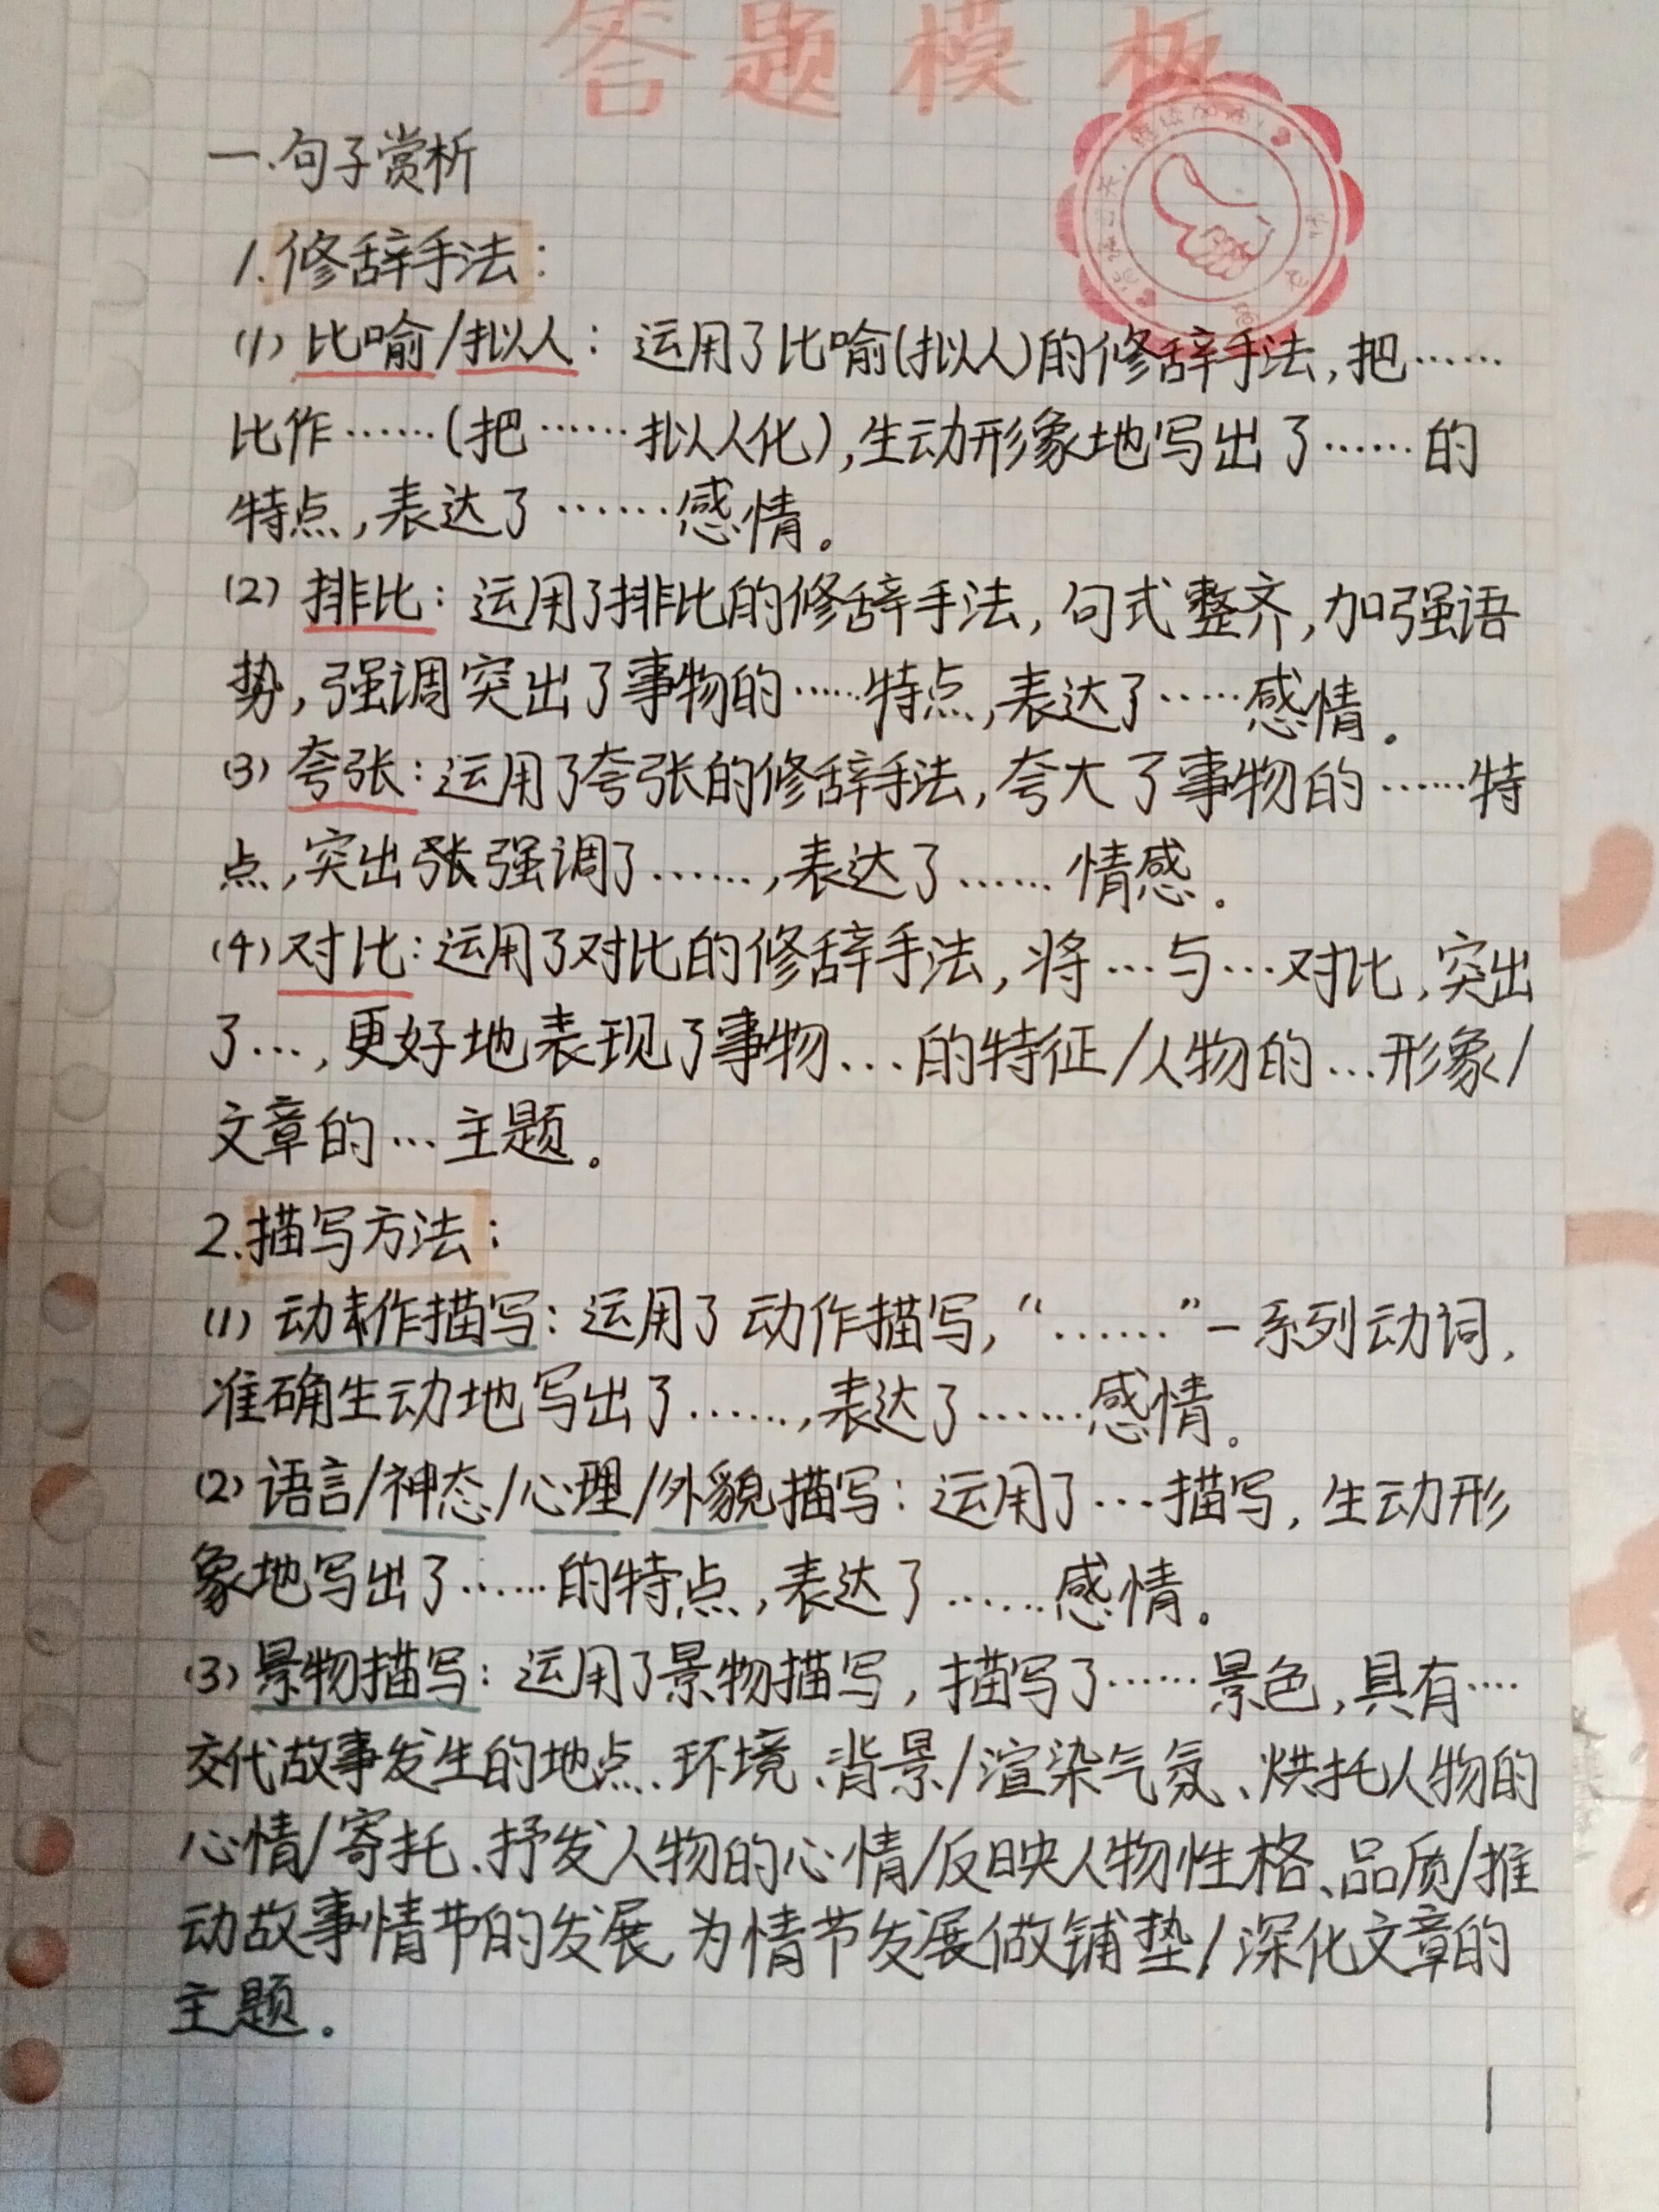 答题模板
一.句子赏析
1.修辞手法:
(1)比喻/拟人:运用了比喻(拟人)的修辞手法,把……
比作……(把……拟人化),生动形象地写出了……的
特点,表达了……感情。
(2)排比:运用了排比的修辞手法,句式整齐,加强语
势,强调突出了事物的……特点,表达了……感情。
(3)夸张:运用了夸张的修辞手法,夸大了事物的……特
点,突出张强调了……,表达了……情感。
(4)对比:运用了对比的修辞手法,将…与…对比,突出
了…,更好地表现了事物…的特征/人物的…形象/
文章的…主题。
2.描写方法:
(1)动作描写:运用了动作描写,“……”一系列动词,
准确生动地写出了……,表达了……感情。
(2)语言/神态/心理/外貌描写:运用了…描写,生动形
象地写出了……的特点,表达了……感情。
(3)景物描写:运用了景物描写,描写了……景色,具有……
交代故事发生的地点、环境、背景/渲染气氛、烘托人物的
心情/寄托、抒发人物的心情/反映人物性格、品质/推
动故事情节的发展、为情节发展做铺垫/深化文章的
主题。
1